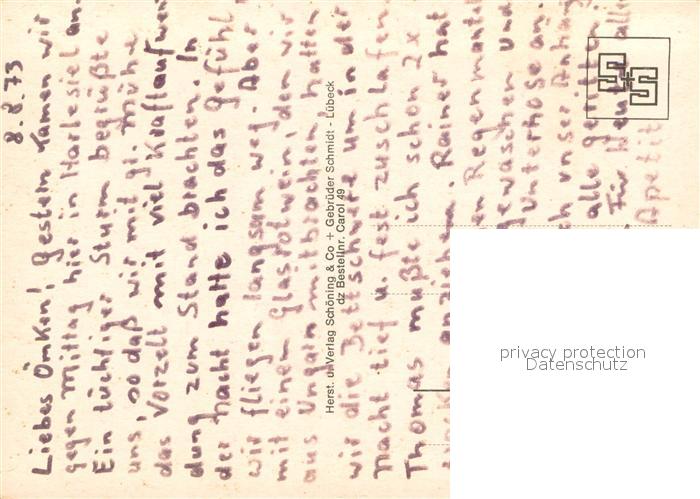 8.8.73
Liebes Omken! Gestern kamen wir
gegen Mittag hier in Harlesiel an.
Ein tüchtiger Sturm begrüßte
uns, so daß wir mit gr. Mühe
das Vorzelt mit viel Kraftaufwen
dung zum Stand brachten. In
der Nacht hatte ich das Gefühl
wir fliegen langsam weg. Aber
mit einem Glas Rotwein, den wir
aus Ungarn mitbrachten hatten
wir die Bettschwere um in der
Nacht tief u. fest zu schlafen.
Thomas mußte ich schon 2x
anziehen. Rainer hat
en Regenmant
ewaschen und
Unterhose an.
ch unser Anhang
alle geritten.
Für heute alle
Apetit
Herst. u. Verlag Schöning & Co + Gebrüder Schmidt - Lübeck
dz Bestellnr. Carol 49
privacy protection
Datenschutz